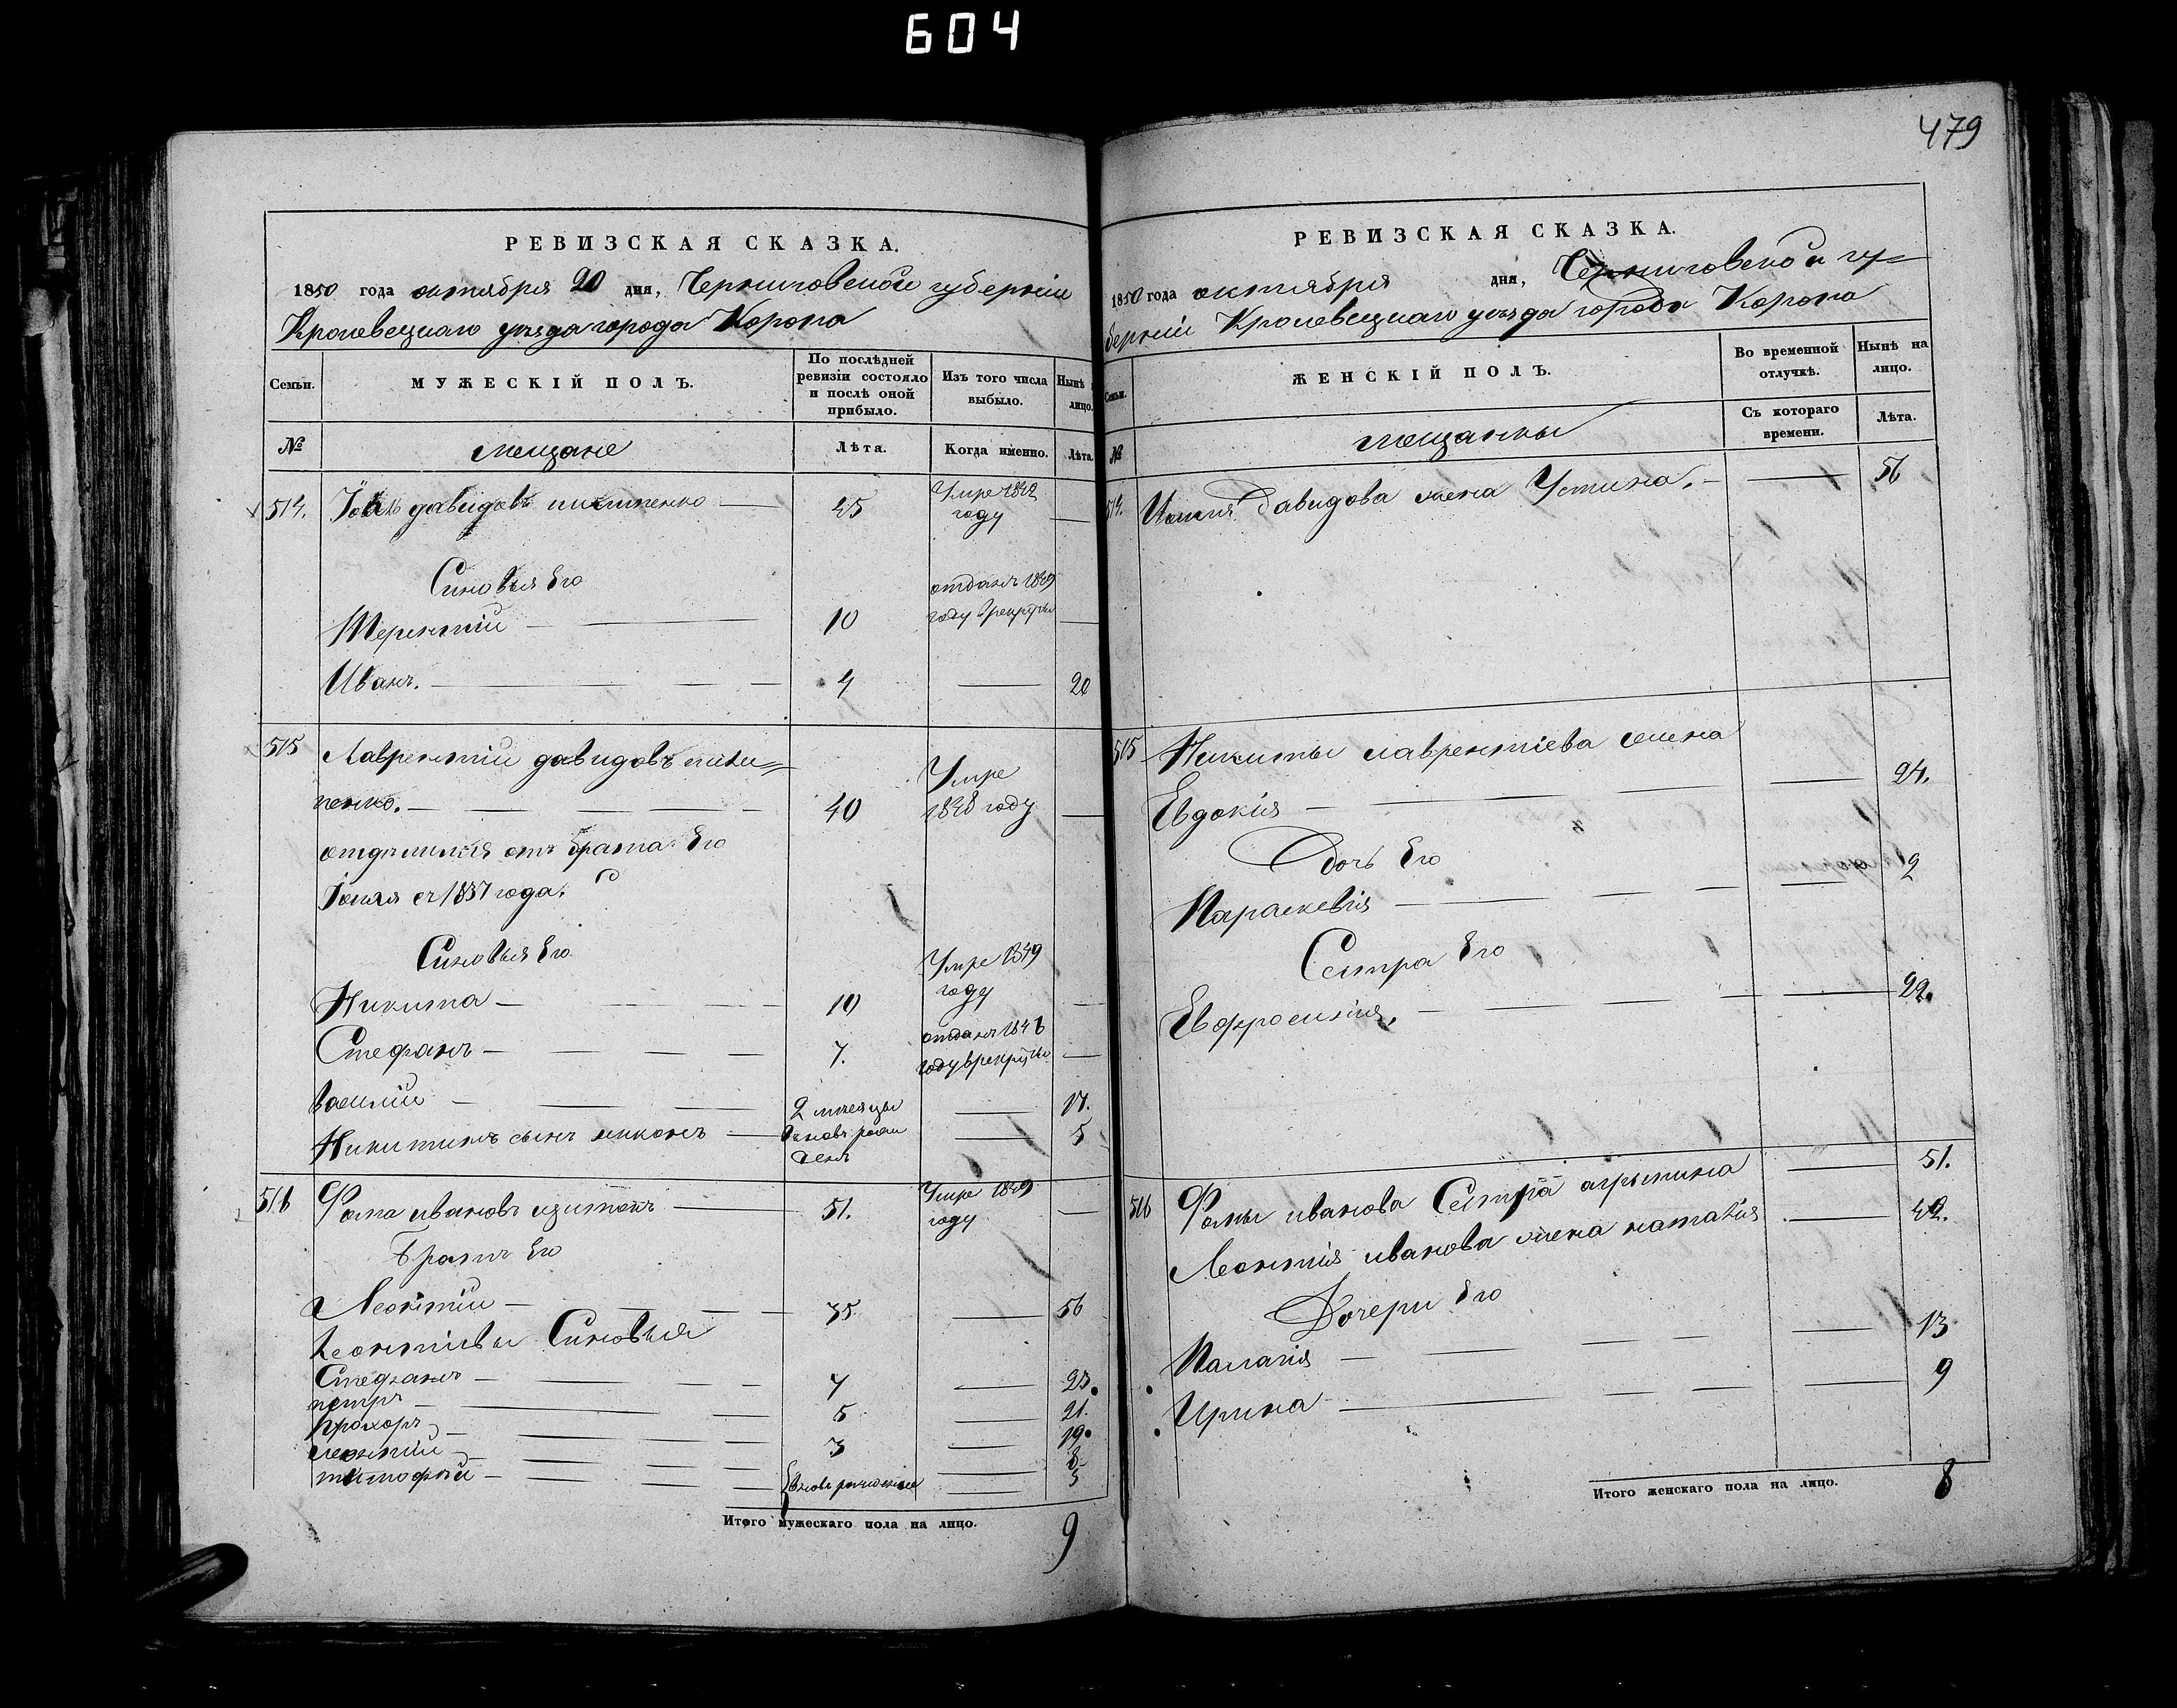 604
479
РЕВИЗСКАЯ СКАЗКА.
1850 года октября 20 дня, Черниговской губерніи
Кролевецкаго уезда города Коропа
Семьи.
МУЖЕСКІЙ ПОЛЪ.
По послѣдней ревизіи состояло и послѣ оной прибыло.
Изъ того числа выбыло.
Нынѣ лицо.
№
мещане
Лѣта.
Когда именно.
Лѣта.
514. давидовъ 45 Умре 1842
году
Синовья Его
отданъ 1849
Терентій 10 году врекруты
Иванъ. 4 20
515 Лаврентій давидовъ
пенко. 40 Умре
1848 году
отделился отъ брата Его
с 1837 года.
Синовья Его
Никита 10 Умре 1849
году
Стефанъ 7. отданъ 1846
году врекруты
Василій 2 месяцы 17.
Никитинъ сынъ никонъ вновь рожденъ 5
516 Фома ивановъ 51. Умре 1849
году
Братъ Его
Леонтій 35. 56
Леонтіевы Синовья
Стефанъ 7 23.
петръ 5 21.
Прохоръ 3 19.
леонтій 8
тимофей вновь рожденіе 5
Итого мужескаго пола на лицо. 9
РЕВИЗСКАЯ СКАЗКА.
1850 года октября дня, Черниговской гу-
берніи Кролевецкаго уезда города Коропа
Семьи.
ЖЕНСКІЙ ПОЛЪ.
Во временной отлучкѣ.
Нынѣ на лицо.
Съ котораго времени.
Лѣта.
№
мещанки
514. Давидова жена Устина. 56
515 Никиты лаврентіева жена
Евдокія 24.
Дочь Его
Параскевія 2
Сестра Его
Евфросинія. 22.
516 Фомы иванова Сестра агрипина 51.
Леонтія иванова жена наталія 42.
Дочери Его
Палагія 13
Ирина 9
Итого женскаго пола на лицо. 8